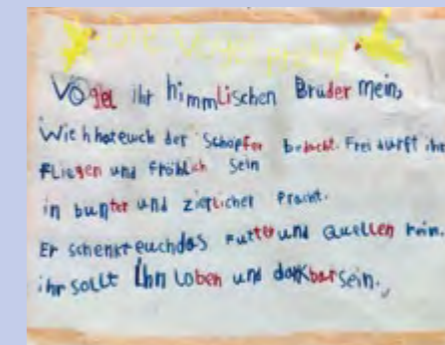 Die Vogelpredigt
Vögel ihr himmlischen Brüder mein,
Wie hat euch der Schöpfer bedacht. Frei dürft ihr
Fliegen und fröhlich sein
in bunter und zierlicher Pracht.
Er schenkt euch das Futter und Quellen rein.
ihr sollt Ihn Loben und dankbar sein.